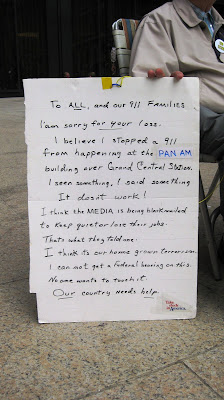 To ALL, and our 911 FAMILIES
I am sorry for your loss.
I believe I stopped a 911
from happening at the PAN AM
building over Grand Central Station.
I seen something, I said something
It dosn't work!
I think the MEDIA is being blackmailed
to keep quiet or lose their jobs.
Thats what they told me.
I think its our home grown terrorism.
I can not get a Federal hearing on this.
No one wants to touch it.
Our country needs help.